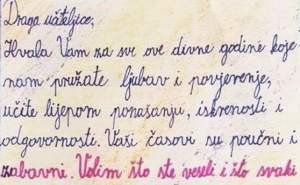 Draga učiteljice,
Hvala Vam za sve ove divne godine koje
nam pružate ljubav i povjerenje,
učite lijepom ponašanju, iskrenosti i
odgovornosti. Vaši časovi su poučni i
zabavni. Volim što ste veseli i što svaki